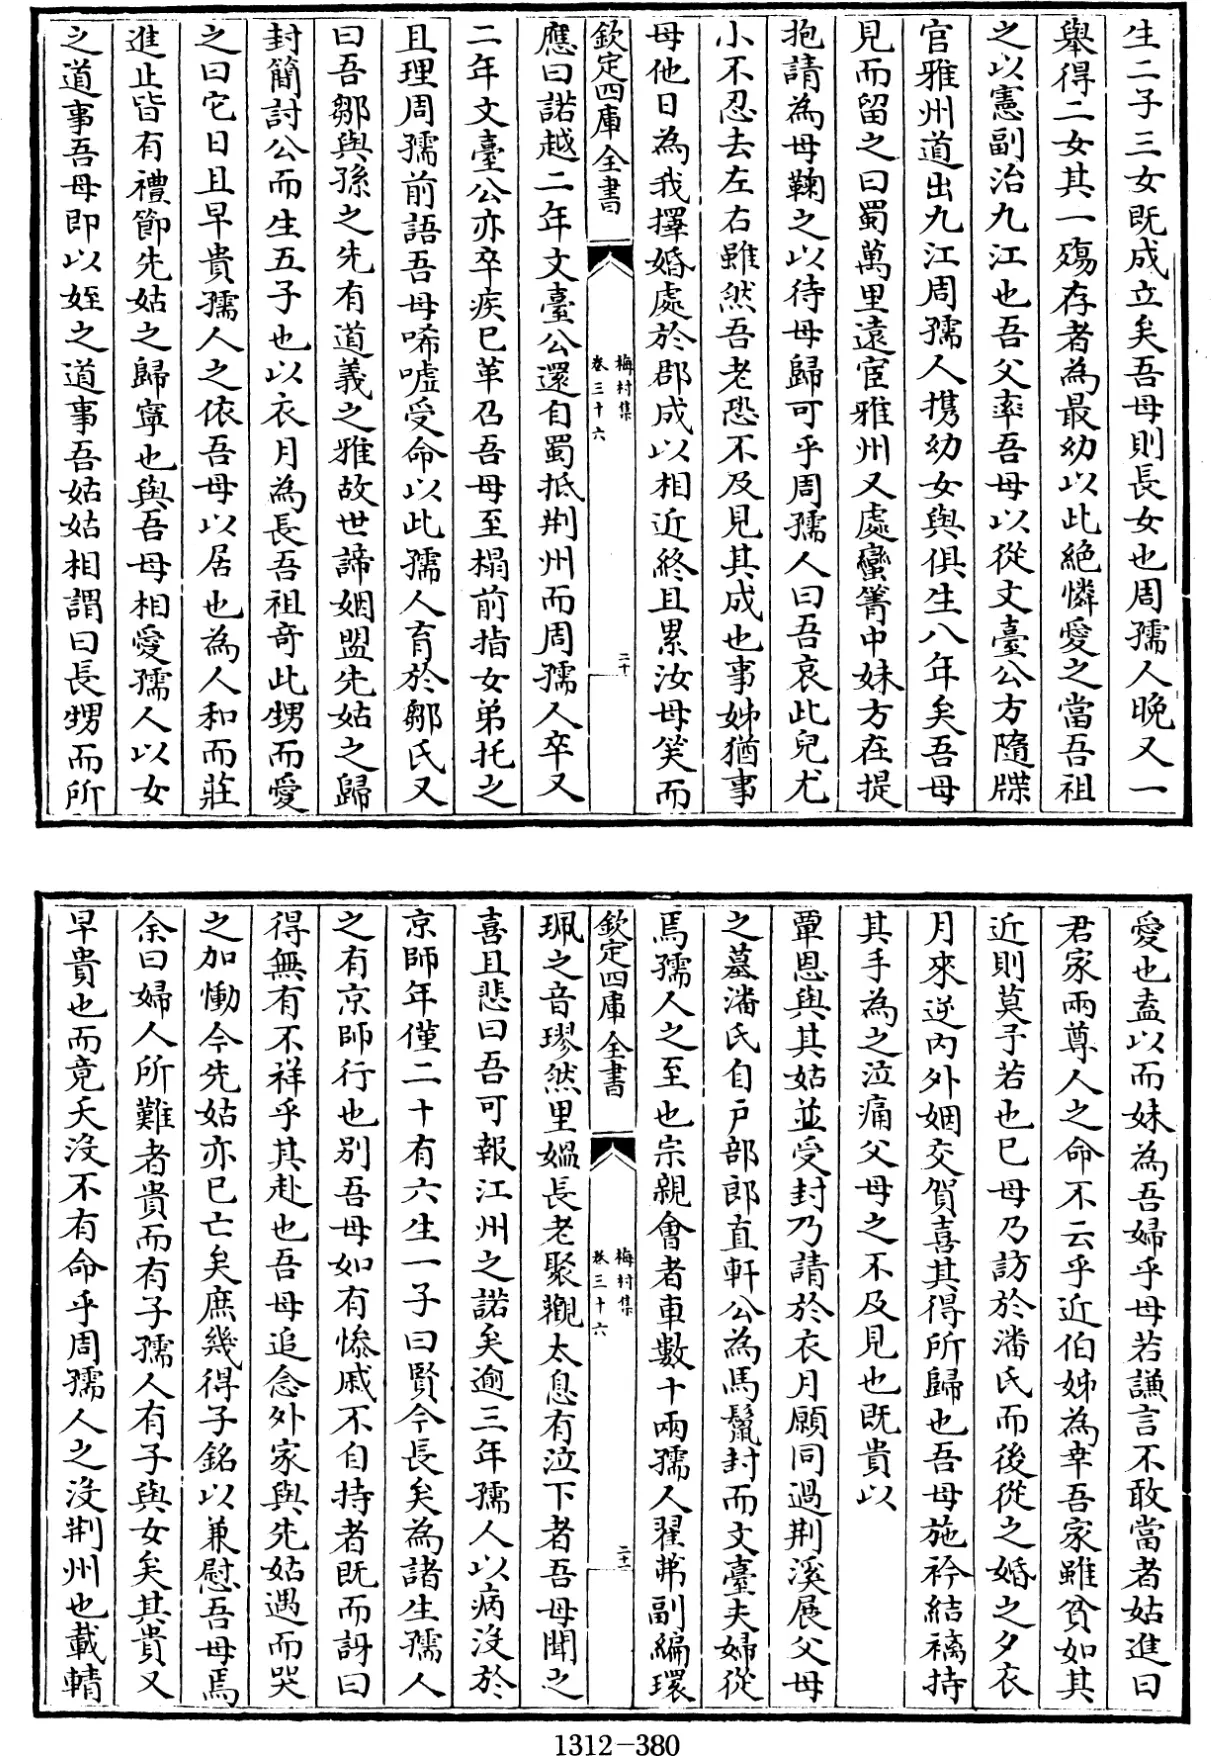 生二子三女既成立矣吾母則長女也周孺人晚又一
舉得二女其一殤存者為最幼以此絶憐愛之當吾祖
之以憲副治九江也吾父率吾母以從文臺公方隨牒
官雅州道出九江周孺人攜幼女與俱生八年矣吾母
見而留之曰蜀萬里遠宦雅州又處蠻箐中妹方在提
抱請為母鞠之以待母歸可乎周孺人曰吾哀此兒尤
小不忍去左右雖然吾老恐不及見其成也事姊猶事
母他日為我擇婚處於郡成以相近終且累汝母笑而
欽定四庫全書
梅村集
卷三十六
二十
應曰諾越二年文臺公還自蜀抵荆州而周孺人卒又
二年文臺公亦卒疾已革召吾母至榻前指女弟托之
且理周孺前語吾母唏嘘受命以此孺人育於鄒氏又
曰吾鄒與孫之先有道義之雅故世諦姻盟先姑之歸
封簡討公而生五子也以衣月為長吾祖奇此甥而愛
之曰它日且早貴孺人之依吾母以居也為人和而莊
進止皆有禮節先姑之歸寧也與吾母相愛孺人以女
之道事吾母即以姪之道事吾姑姑相謂曰長甥而所
愛也盍以而妹為吾婦乎母若謙言不敢當者姑進曰
君家兩尊人之命不云乎近伯姊為幸吾家雖貧如其
近則莫予若也已母乃訪於潘氏而後從之婚之夕衣
月來逆内外姻交賀喜其得所歸也吾母施衿結褵持
其手為之泣痛父母之不及見也既貴以
覃恩與其姑並受封乃請於衣月願同過荆溪展父母
之墓潘氏自戸部郎直軒公為馬鬛封而文臺夫婦從
焉孺人之至也宗親會者車數十兩孺人翟茀副編環
欽定四庫全書
梅村集
卷三十六
二十一
珮之音璆然里媼長老聚觀太息有泣下者吾母聞之
喜且悲曰吾可報江州之諾矣逾三年孺人以病沒於
京師年僅二十有六生一子曰賢今長矣為諸生孺人
之有京師行也别吾母如有慘戚不自持者既而訝曰
得無有不祥乎其赴也吾母追念外家與先姑遇而哭
之加慟今先姑亦已亡矣庶幾得子銘以兼慰吾母焉
余曰婦人所難者貴而有子孺人有子與女矣其貴又
早貴也而竟夭沒不有命乎周孺人之沒荆州也載轎
1312-380